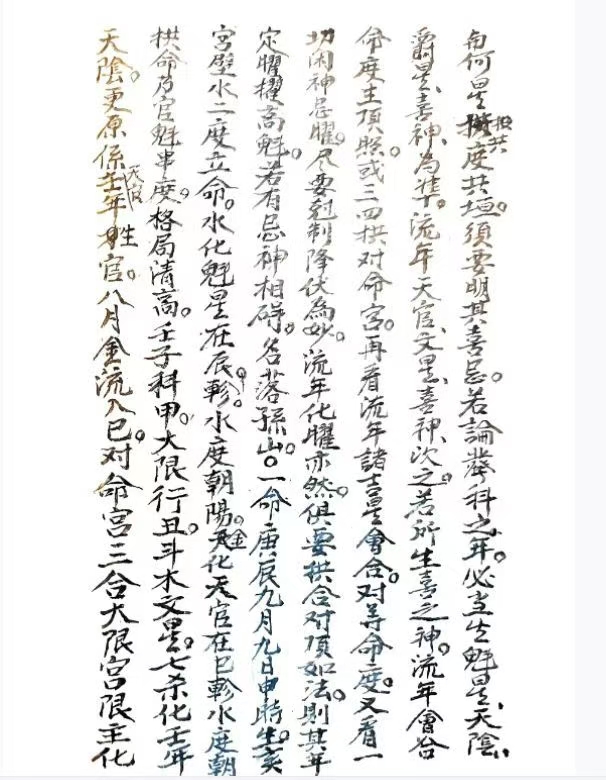 何星度共垣。須要明其喜忌。若論發科之年。必当生魁星、天陰、
拱共
爵星、喜神為準。流年天官、文星、喜神次之。若所生喜之神。流年會合
命度主頂照。或三四拱对命宮。再看流年諸吉星會合。对等命度。又看一
切闲神忌曜。尽要尅制降伏為妙。流年化曜亦然。俱要拱合对頂如法。則其年
定曜擢高魁。若有忌神相碍。名落孫山。○一命庚辰九月九日申時生。亥
宮壁水二度立命。水化魁星在辰軫。水度朝陽。金化天官在巳軫水度朝
拱命乃官魁串度。格局清高。壬子科甲。大限行丑。斗木文星。七杀化壬年
天陰。更原係壬年姓官。八月金流入巳。对命宮三合大限宮限主化
天官